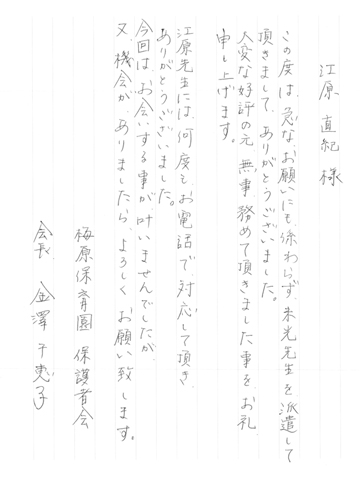 江原 直紀 様
この度は、急なお願いにも係わらず、末光先生を派遣して
頂きまして、ありがとうございました。
大変な好評の元、無事務めて頂きました事をお礼
申し上げます。
江原先生には、何度もお電話で対応して頂き、
ありがとうございました。
今回は、お会いする事が叶いませんでしたが、
又、機会がありましたら、よろしくお願い致します。
梅原保育園 保護者会
会長 金澤 千恵子